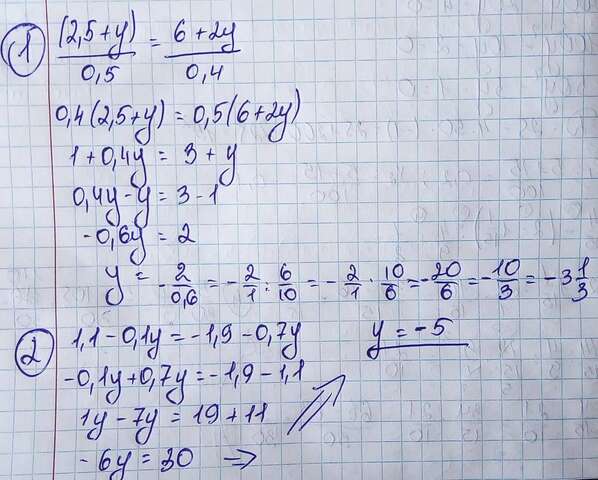 1 (2,5+y)/0,5 = 6+2y/0,4
0,4(2,5+y) = 0,5(6+2y)
1+0,4y = 3+y
0,4y-y = 3-1
-0,6y = 2
y = -2/0,6 = -2/1 : 6/10 = -2/1 · 10/6 = -20/6 = -10/3 = -3 1/3
2 1,1-0,1y = -1,9-0,7y
y = -5
-0,1y+0,7y = -1,9-1,1
1y-7y = 19+11
-6y = 30 ⇒